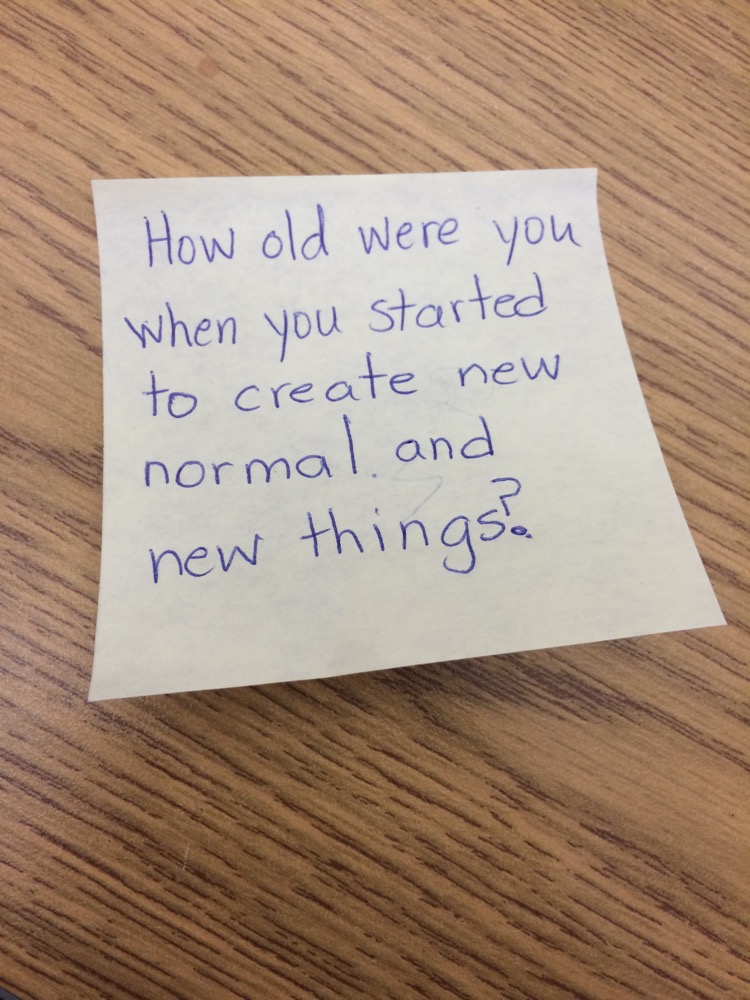 How old were you
when you started
to create new
normal and
new things?